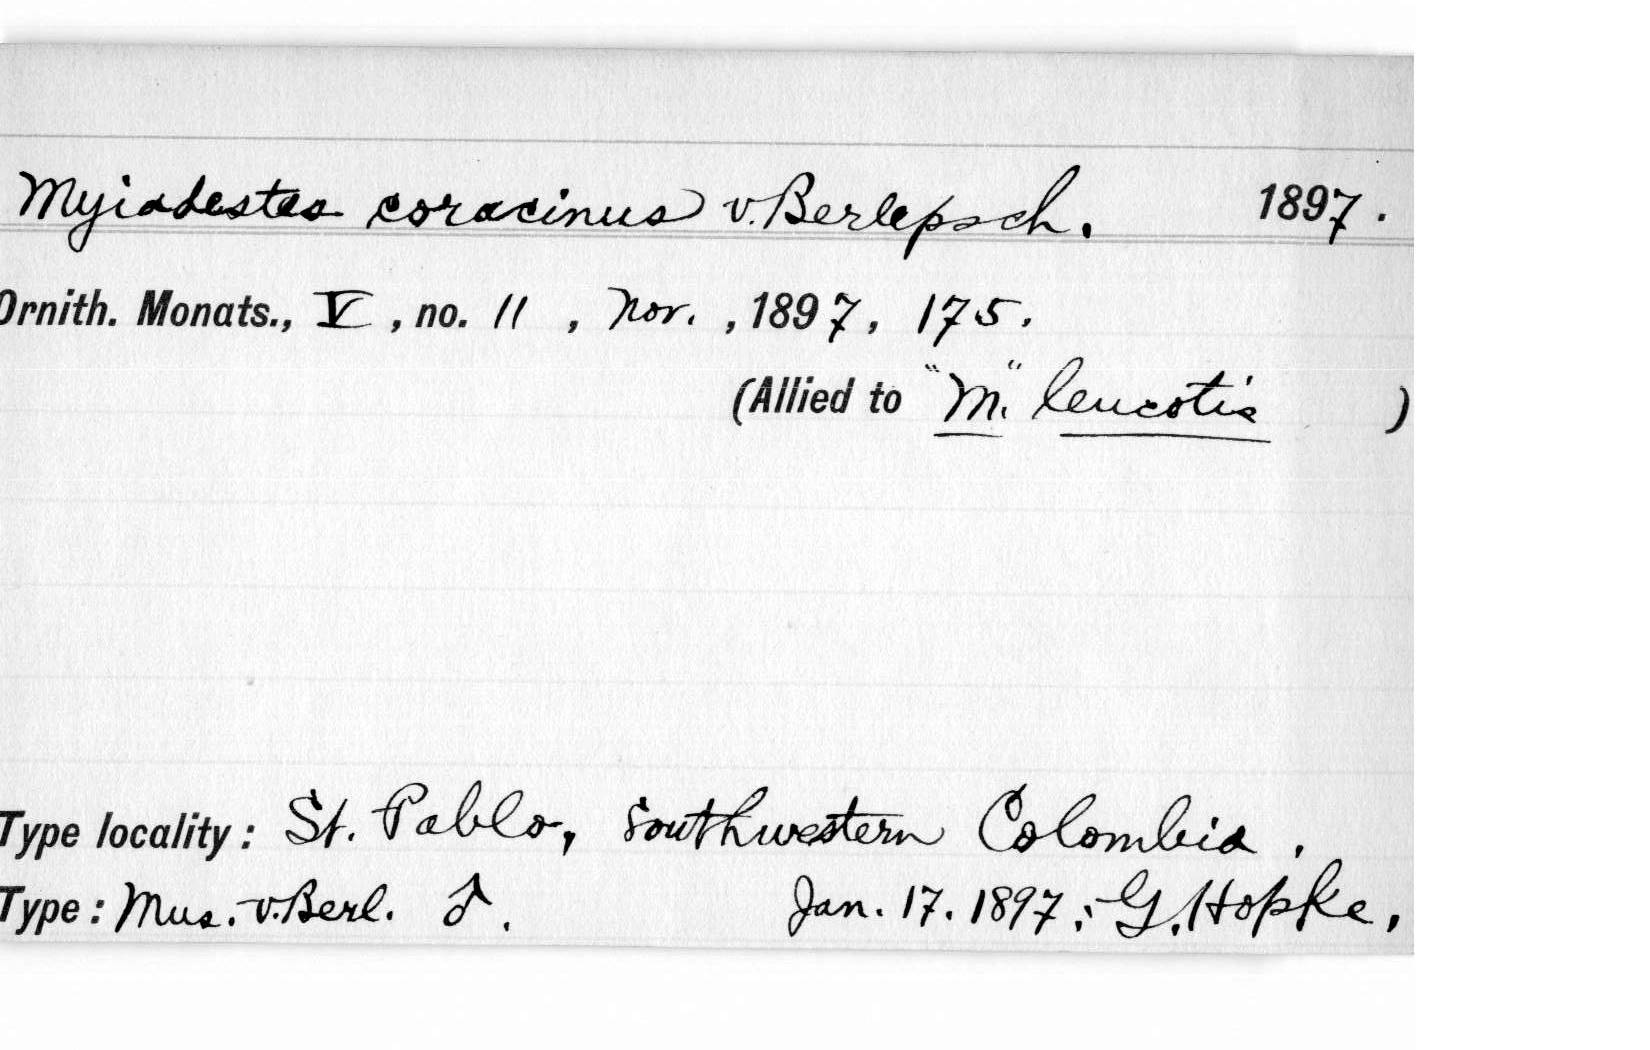 Myiadestes coracinus v. Berlepsch. 1897.
Ornith. Monats., V, no. 11, Nov., 1897, 175.
(Allied to "M." leucotis)
Type locality: St. Pablo, southwestern Colombia.
Type: Mus. v. Berl. ♂. Jan. 17. 1897; G. Hopke.